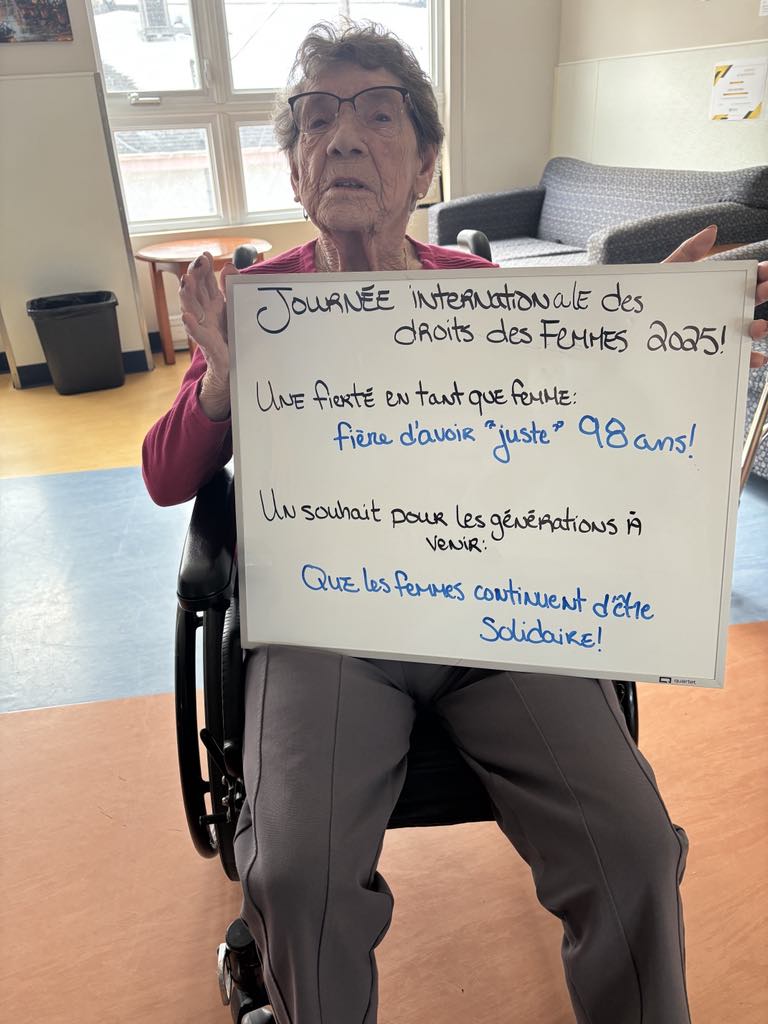 JOURNÉE INTERNATIONALE des
droits des FEMMES 2025!
UNE fierté en tant que femme:
fière d'avoir "juste" 98 ans!
UN souhait pour les générations à
venir:
QUE les femmes continuent d'être
Solidaire!
quartet